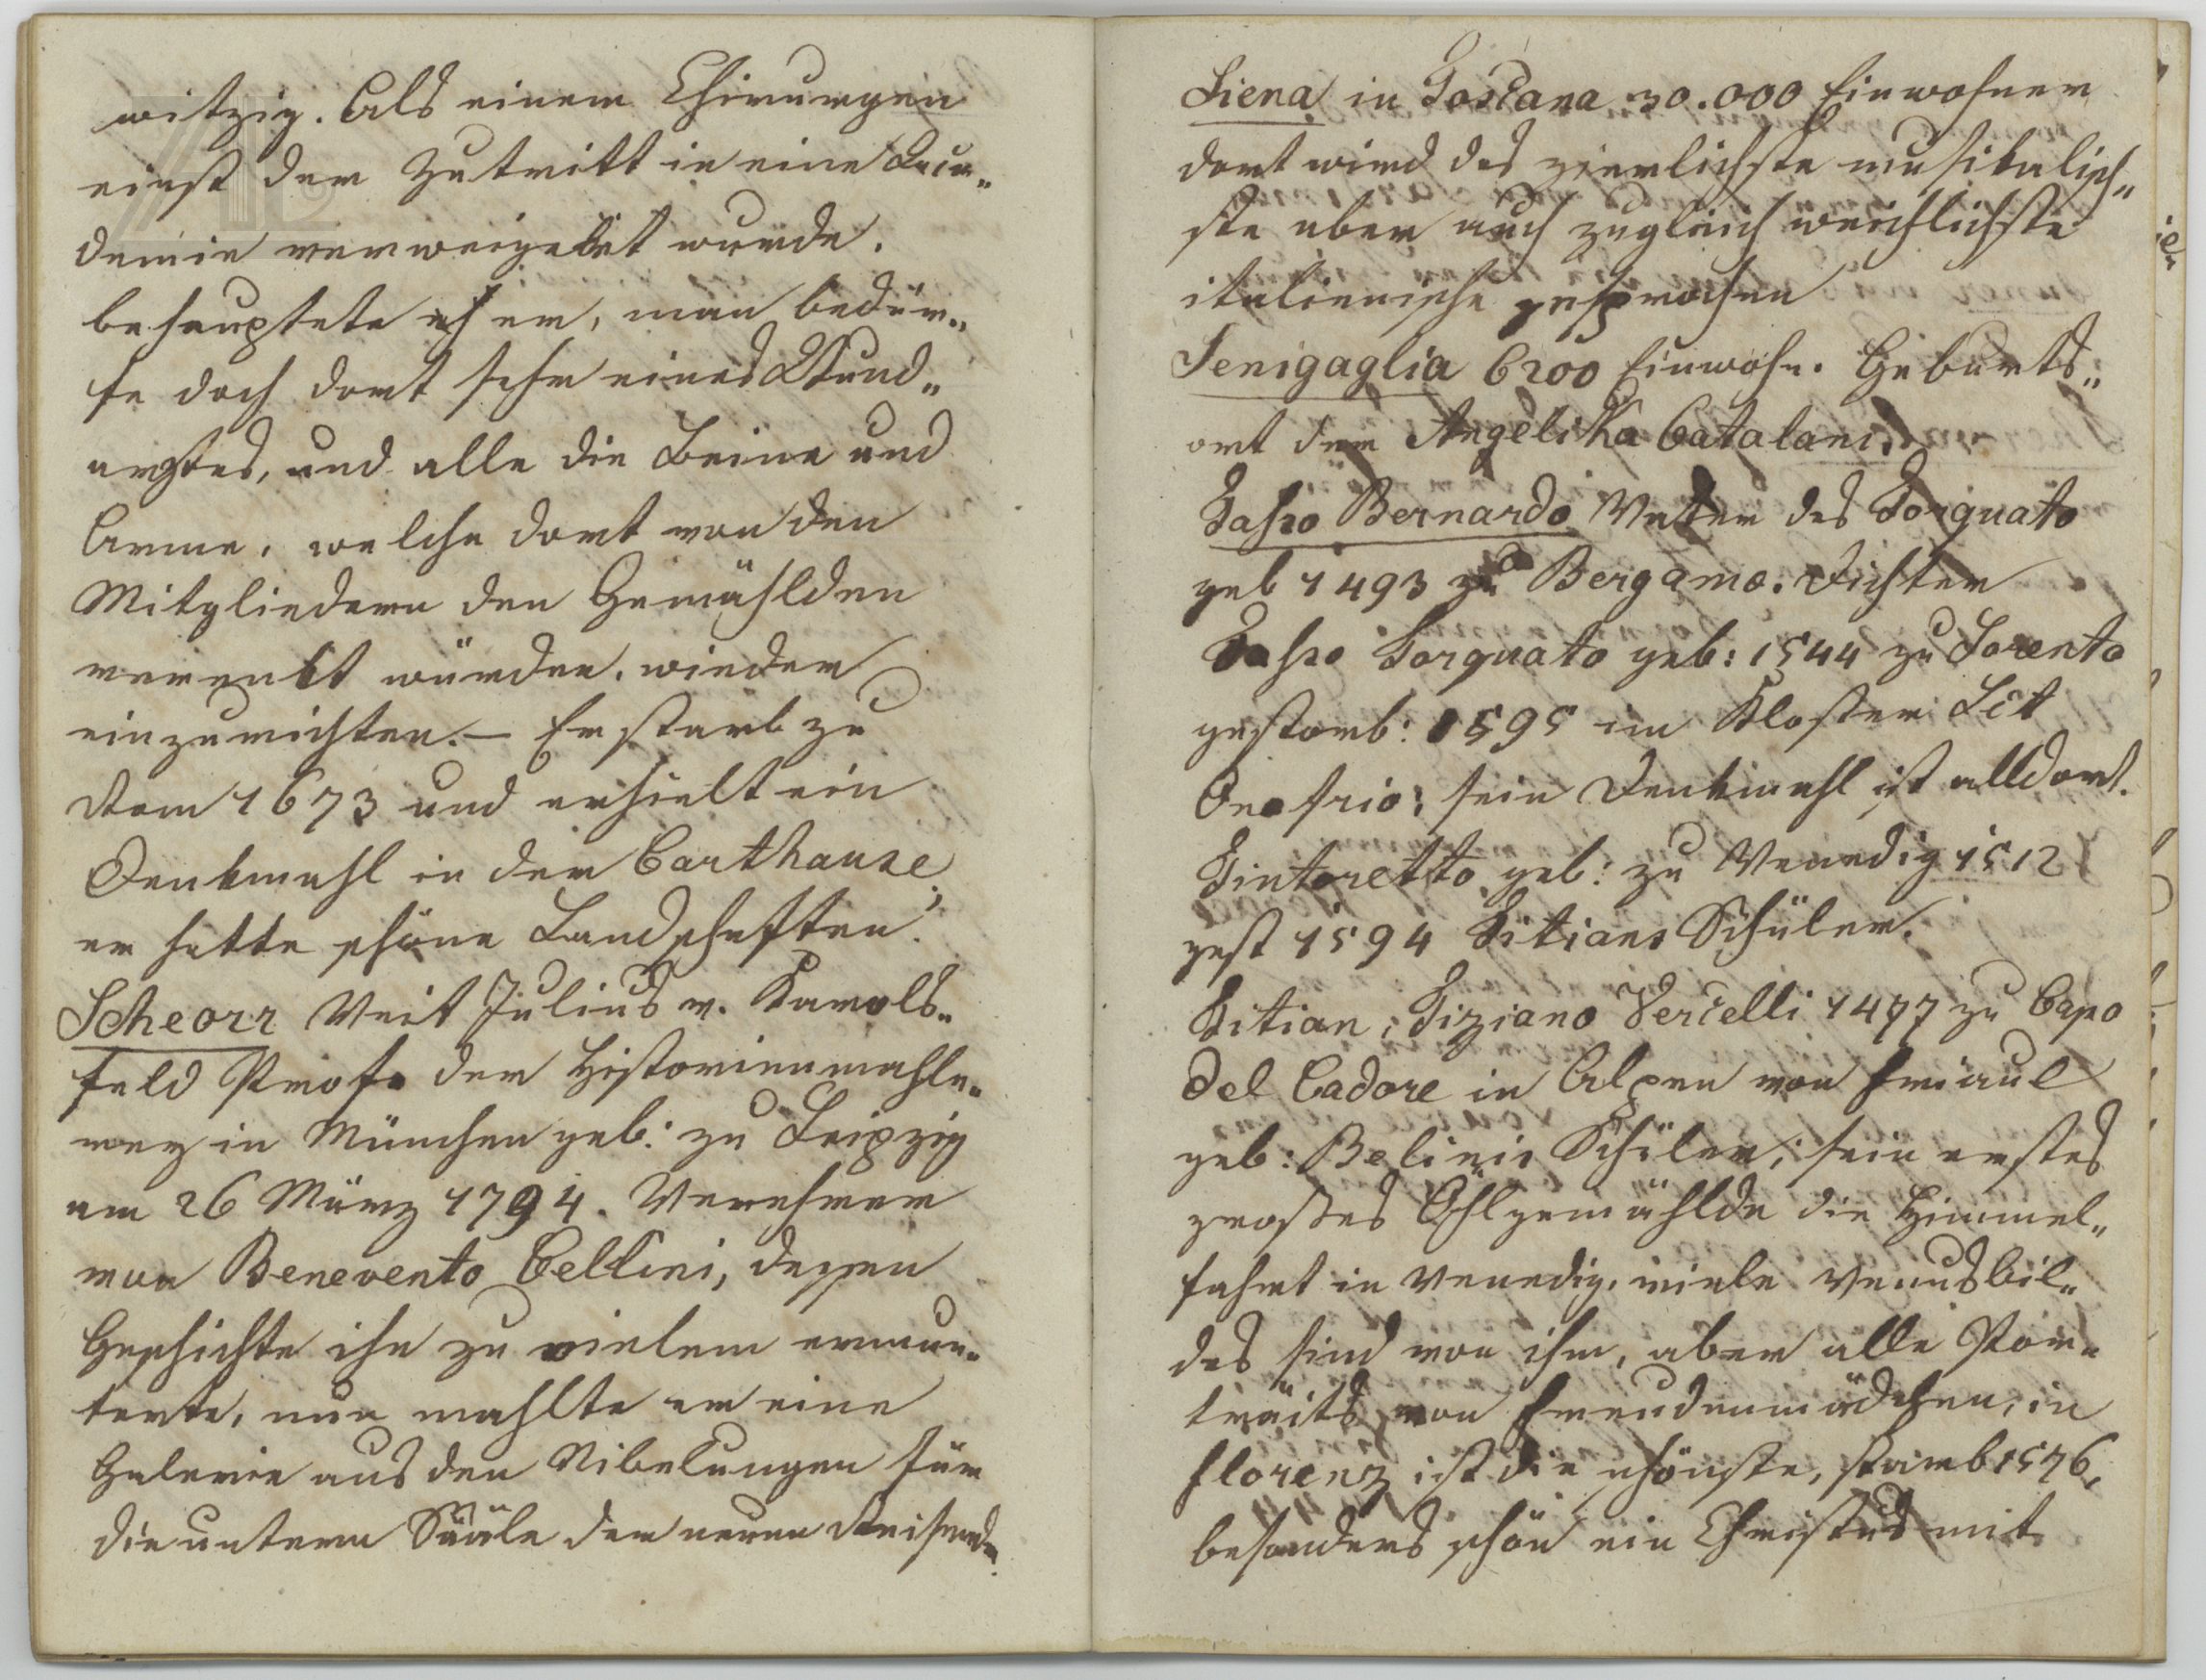 witzig. Als einem Chirurgen
einst der Zutritt in eine Aca„
demie verweigert wurde.
behauptete er, man bedür„
fe doch dort sehr eines Wund„
arztes, und alle die Beine und
Arme, welche dort von den
Mitgliedern den Gemählden
verenkt würden, wieder
einzurichten. – Er starb zu
Rom 1673 und erhielt ein
Denkmahl in der Carthause,
er hatte schöne Landschaften.
Scheorr Veit Julius v. Karols„
feld Prof. der Historienmahle„
rey in München geb: zu Leipzig
am 26 März 1794. Verehrer
von Benevento Cellini, dessen
Geschichte ihn zu vielem ermun„
terte, nun mahlte er eine
Galerie aus den Nibelungen für
die untern Sääle der neuen Residenz.
Siena in Toscana 30.000 Einwohner
dort wird das zierlichste musikalisch„
ste aber auch zugleich weichlichste
italienische gesprochen
Senigaglia 6200 Einwohn. Geburts„
ort der Angelika Catalani.
Tasso Bernardo Vater des Torquato
geb 1493 zu Bergamo. Dichter
Tasso Torquato geb: 1544 zu Sorento
gestorb: 1595 im Kloster Sct
Onofrio; sein Denkmahl ist alldort.
Tintoretto geb: zu Venedig 1512
gest 1594 Titians Schüler.
Titian, Tiziano Vercelli 1477 zu Capo
del Cadore in Alpen von Friaul
geb: Belinis Schüler; sein erstes
großes Öhlgemählde die Himmel„
fahrt in Venedig. viele Venusbil„
des sind von ihm, aber alle Por„
traits von Freudenmädchen, in
Florenz ist die schönste, starb 1576,
besonders schön ein Christus mit